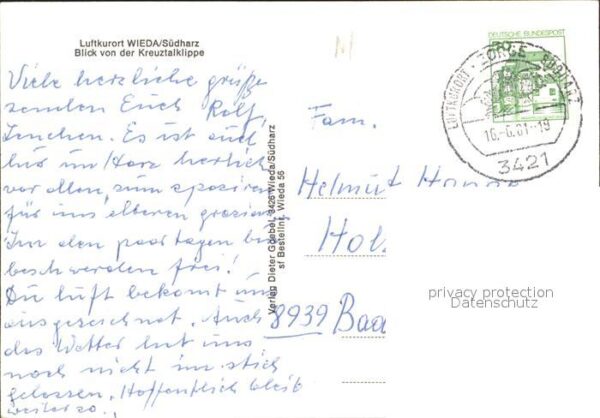 Luftkurort WIEDA/Südharz
Blick von der Kreuztalklippe
Viele herzliche grüße
senden Euch Rolf,
Lenchen. Es ist auch
hir im Harz herlich
vor allen, zum spaziren
für uns älteren
In den paar tagen bin
beschwerden frei!
Die luft bekomt uns
ausgezeichnet. Auch
das Wetter hat uns
noch nicht im stich
gelassen. Hoffentlich bleib
weiter so.
Verlag Dieter Goebel, 3426 Wieda/Südharz
sf Bestellnr. Wieda 56
DEUTSCHE BUNDESPOST
LUFTKURORT · ZORGE · SÜDHARZ
16.-6.81-19
3421
Fam.
Helmut
Hol
8939 Baa
privacy protection
Datenschutz